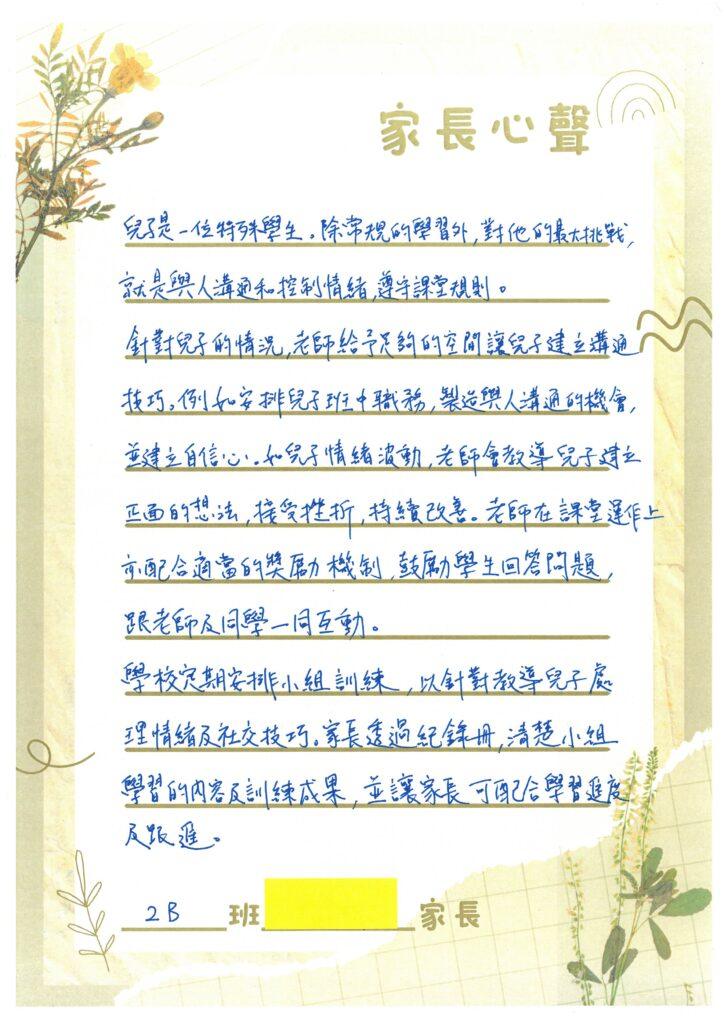 家長心聲
兒子是一位特殊學生。除常規的學習外,對他的最大挑戰,
就是與人溝通和控制情緒,遵守課堂規則。
針對兒子的情況,老師給予足夠的空間讓兒子建立溝通
技巧。例如安排兒子班中職務,製造與人溝通的機會,
並建立自信心。如兒子情緒波動,老師會教導兒子建立
正面的想法,接受挫折,持續改善。老師在課堂運作上
亦配合適當的獎勵機制,鼓勵學生回答問題,
跟老師及同學一同互動。
學校定期安排小組訓練,以針對教導兒子處
理情緒及社交技巧。家長透過紀錄冊,清楚小組
學習的內容及訓練成果,並讓家長可配合學習進度
及跟進。
2B班 家長